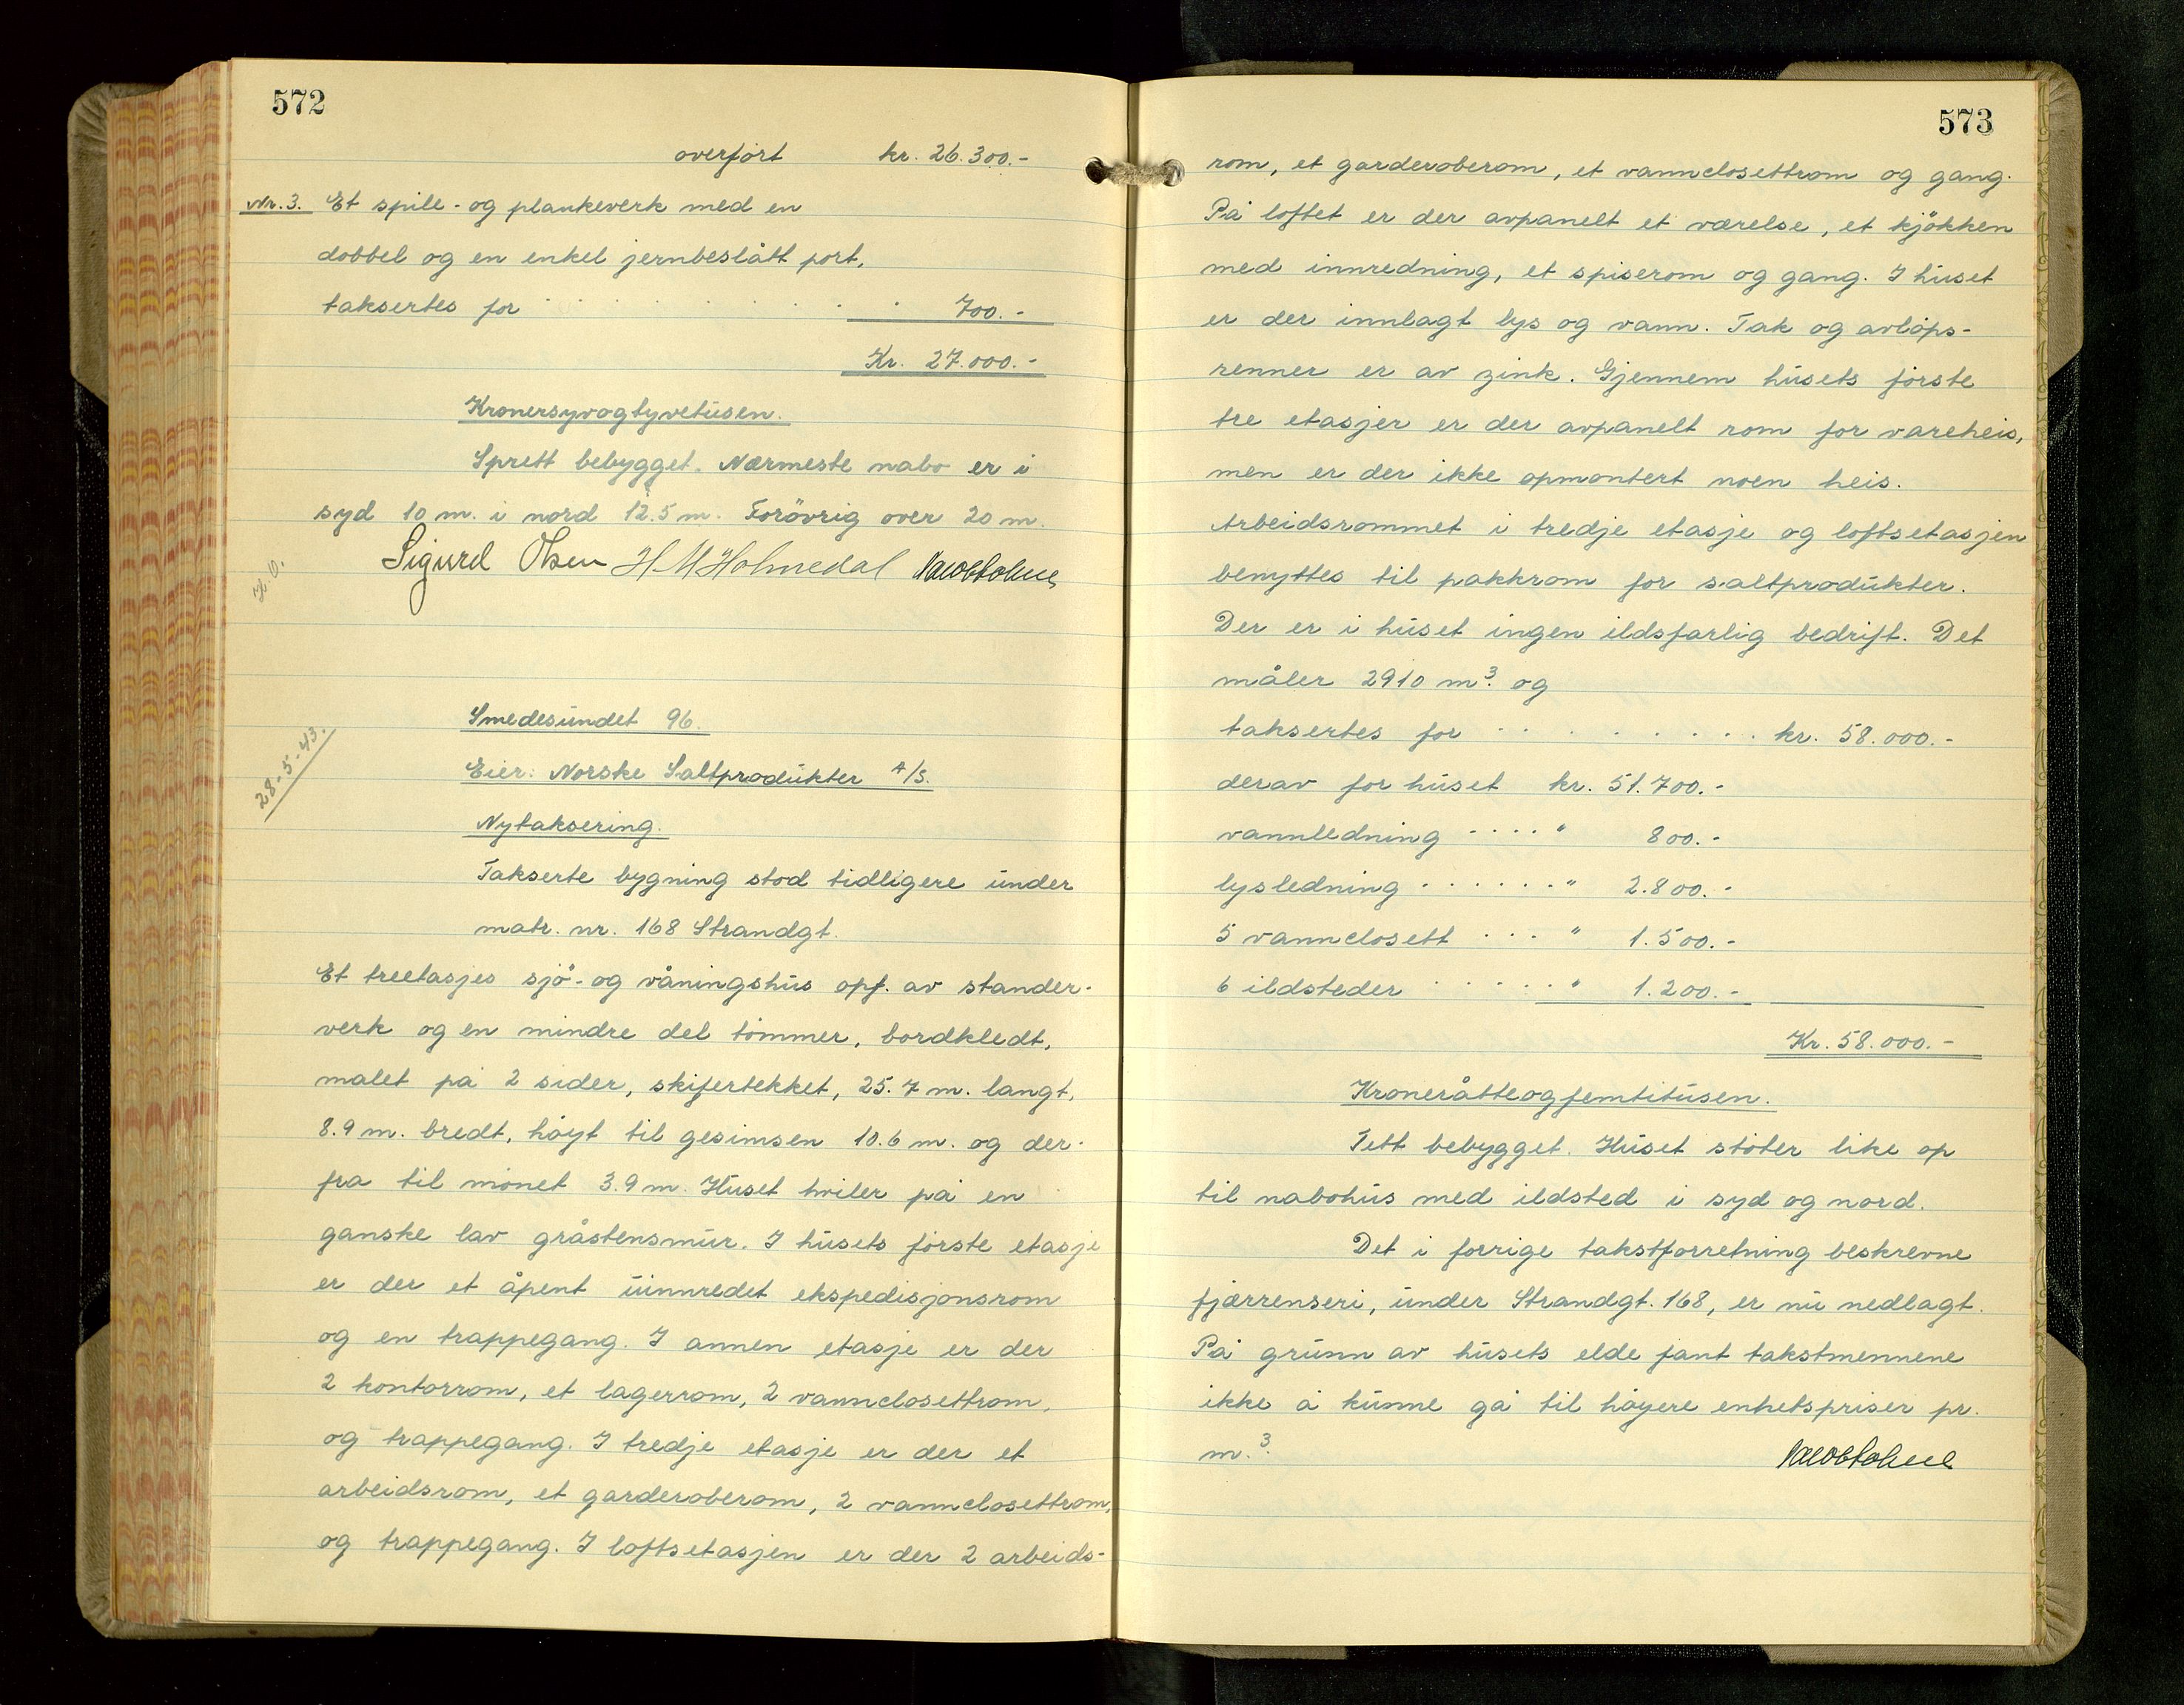 572
overført kr. 26.300.-
Nr. 3. Et spile- og plankeverk med en
dobbel og en enkel jernbeslått port,
taksertes for . . . . . . . . . 700.-
Kr. 27.000.-
Kronersyvogtyvetusen.
Sprett bebygget. Nærmeste nabo er i
syd 10 m. i nord 12.5 m. Forövrig over 20 m.
Sigurd Olsen H M Holmedal
28-5-43.
Smedesundet 96.
Eier: Norske Saltprodukter A/S.
Nytaksering.
Takserte bygning stod tidligere under
matr. nr. 168 Strandgt.
Et treetasjes sjö- og våningshus opf. av stander-
verk og en mindre del tömmer, bordkledt,
malet på 2 sider, skifertekket, 25.7 m. langt,
8.9 m. bredt, höyt til gesimsen 10.6 m. og der-
fra til mönet 3.9 m. Huset hviler på en
ganske lav gråstensmur. I husets förste etasje
er der et åpent uinnredet ekspedisjonsrom
og en trappegang. I annen etasje er der
2 kontorrom, et lagerrom, 2 vannclosettrom,
og trappegang. I tredje etasje er der et
arbeidsrom, et garderoberom, 2 vannclosettrom,
og trappegang. I loftsetasjen er der 2 arbeids-
573
rom, et garderoberom, et vannclosettrom og gang.
På loftet er der avpanelt et værelse, et kjökken
med innredning, et spiserom og gang. I huset
er der innlagt lys og vann. Tak og avlöps-
renner er av zink. Gjennem husets förste
tre etasjer er der avpanelt rom for vareheis,
men er der ikke opmontert noen heis.
Arbeidsrommet i tredje etasje og loftsetasjen
benyttes til pakkrom for saltprodukter.
Der er i huset ingen ildsfarlig bedrift. Det
måler 2910 m³. og
taksertes for . . . . . . . . . kr. 58.000.-
derav for huset kr. 51.700.-
vannledning . . . . " 800.-
lysledning . . . . . . " 2.800.-
5 vannclosett . . . " 1.500.-
6 ildsteder . . . . . " 1.200.-
Kr. 58.000.-
Kroneråtteogfemtitusen.
Tett bebygget. Huset stöter like op
til nabohus med ildsted i syd og nord.
Det i forrige takstforretning beskrevne
fjærrenseri, under Strandgt. 168, er nu nedlagt.
På grunn av husets elde fant takstmennene
ikke å kunne gå til höyere enhetspriser pr.
m.³.